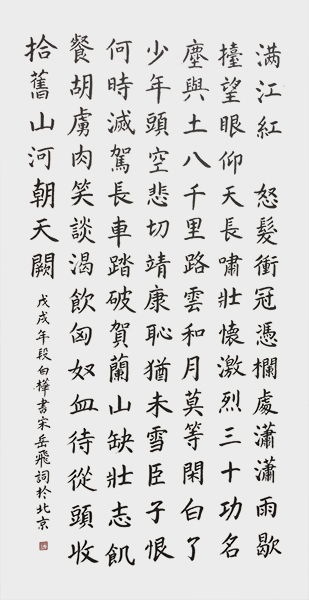 满江紅 怒髮衝冠憑欄處瀟瀟雨歇
擡望眼仰天長嘯壯懷激烈三十功名
塵與土八千里路雲和月莫等閑白了
少年頭空悲切靖康恥猶未雪臣子恨
何時滅駕長車踏破賀蘭山缺壯志飢
餐胡虜肉笑談渴飲匈奴血待從頭收
拾舊山河朝天闕
戊戌年段白樺書宋岳飛詞於北京